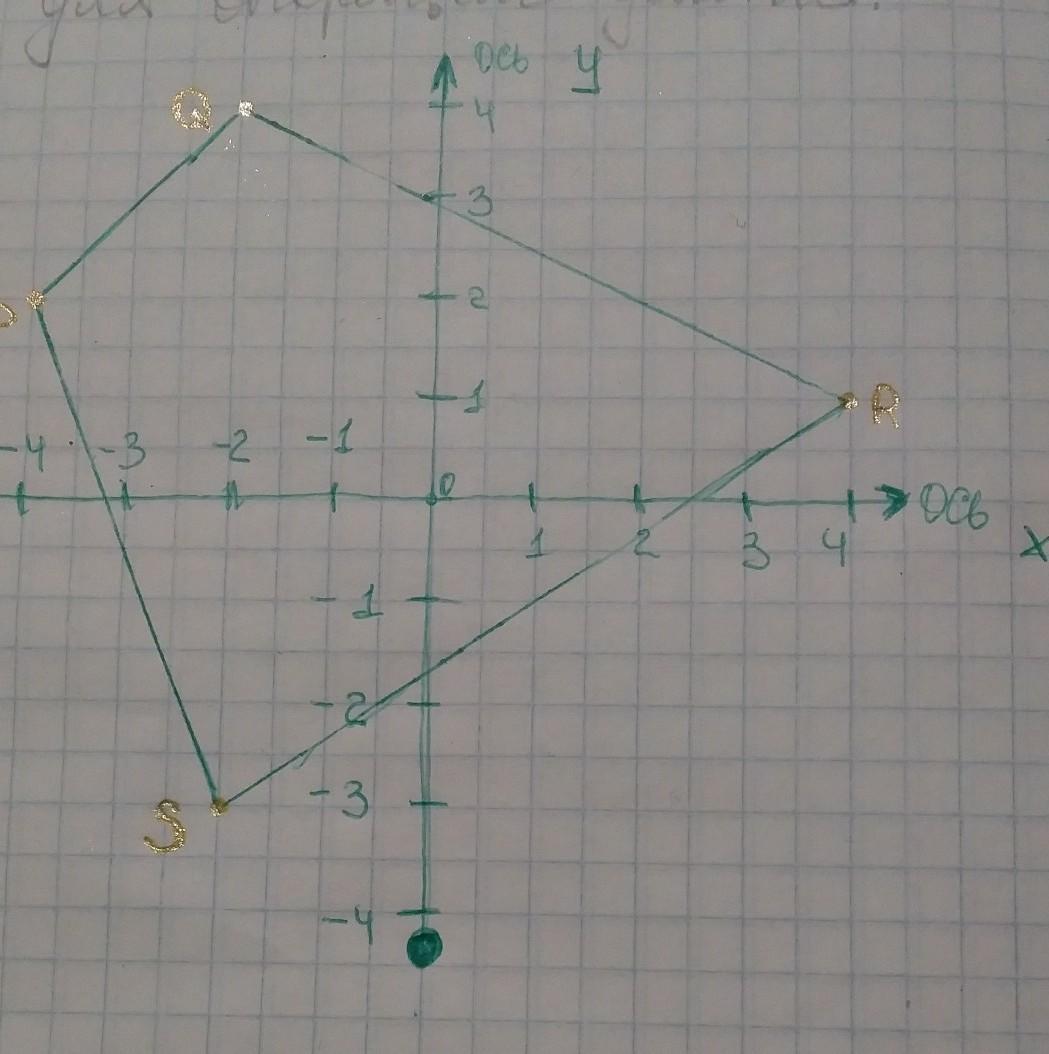 для операции
Ось y
Q
4
3
2
1 R
-4 -3 -2 -1 0
1 2 3 4 Ось x
-1
-2
-3
S
-4